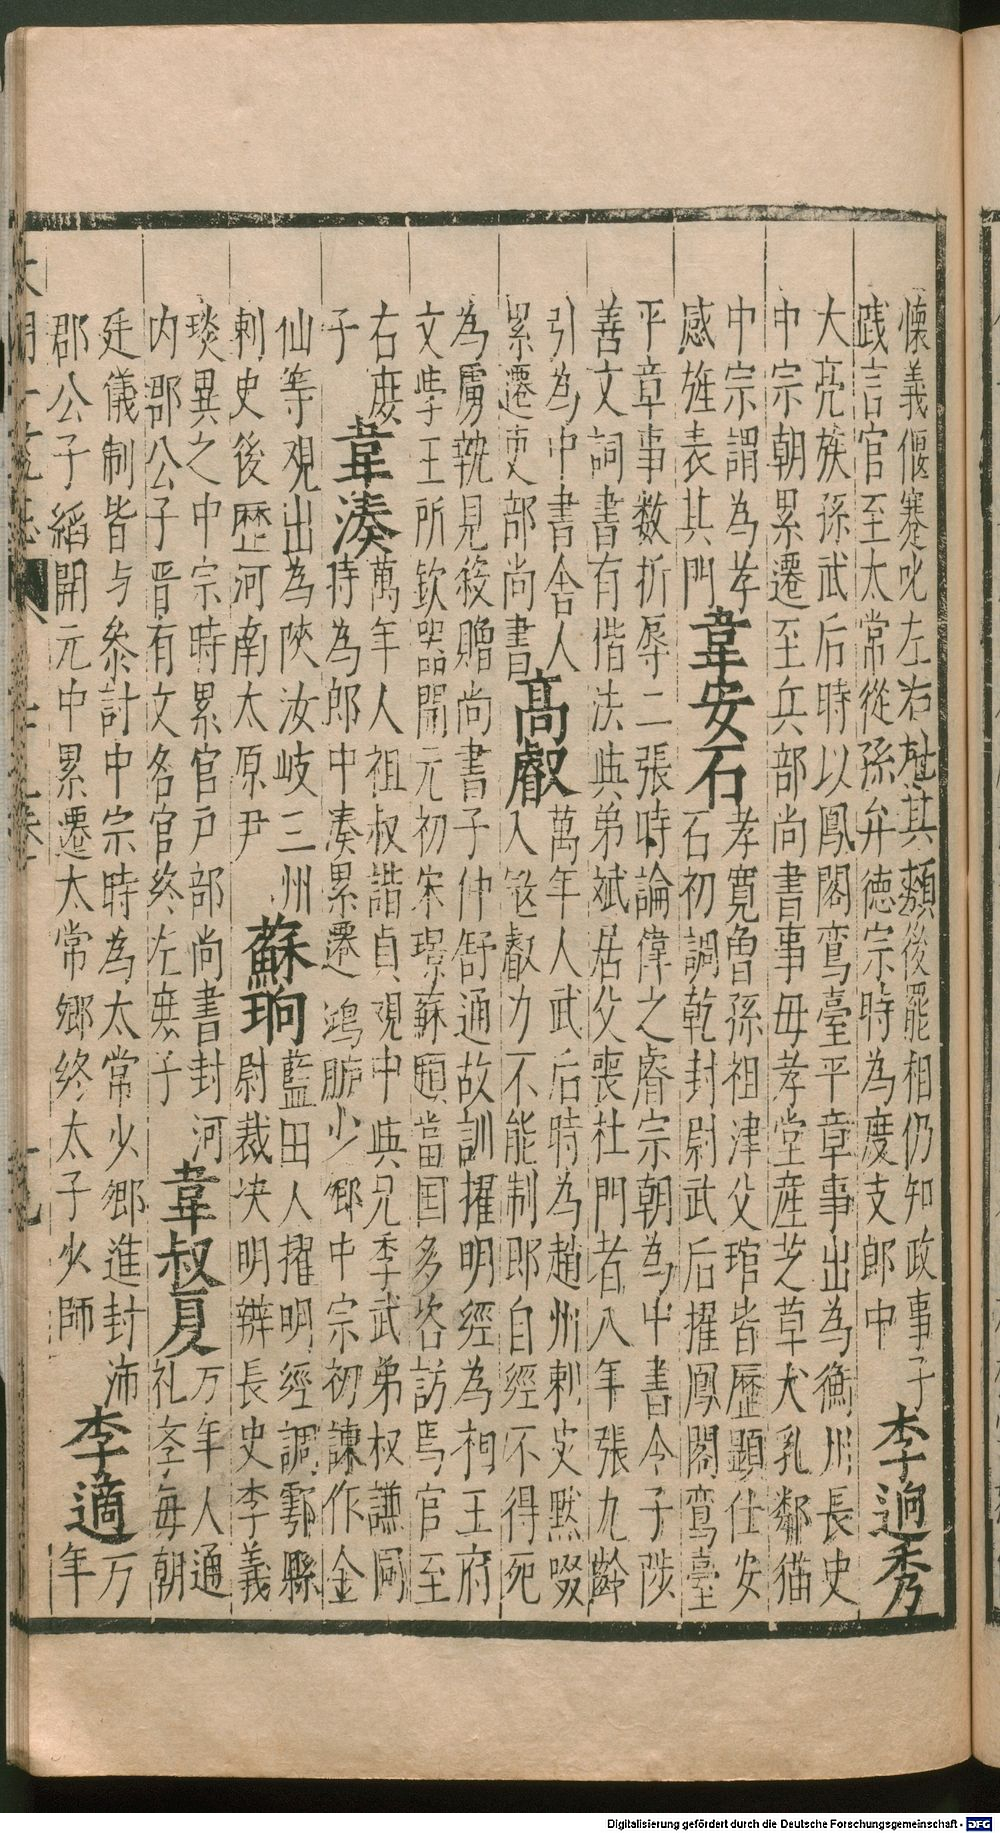 懷義偃蹇叱左右批其頰後罷相仍知政事子
踐言官至太常從孫弁德宗時為度支郎中
李迥秀
大亮族孫武后時以鳳閣鸞臺平章事出為衡州長史
中宗朝累遷至兵部尚書事母孝堂産芝草犬乳鄰猫
中宗謂為孝
感旌表其門
韋安石
孝寬曽孫祖津父琯皆歷顯仕安
石初調乾封尉武后擢鳳閣鸞臺
平章事数折辱二張時論偉之睿宗朝為中書令子陟
善文詞書有偕法與弟斌居父喪杜門者八年張九齡
引為中書舍人
累遷吏部尚書
高叡
萬年人武后時為趙州刺史默啜
入寇叡力不能制即自經不得死
為虜執見殺贈尚書子仲舒通故訓擢明經為相王府
文學王所欽噐開元初宋璟蘇頲當国多咨訪焉官至
右庶
子
韋湊
萬年人祖叔諧貞觀中與兄季武弟叔謙同
時為郎中湊累遷鴻臚少卿中宗初諫作金
仙等觀出為陝汝岐三州
刺史後歷河南太原尹
蘇珦
藍田人擢明經調鄠縣
尉裁决明辨長史李義
琰異之中宗時累官戸部尚書封河
内郡公子晋有文名官終左庶子
韋叔夏
万年人通
礼斈每朝
廷儀制皆与參討中宗時為太常少卿進封沛
郡公子縚開元中累遷太常卿終太子少師
李適
万
年
Digitalisierung gefördert durch die Deutsche Forschungsgemeinschaft - DFG